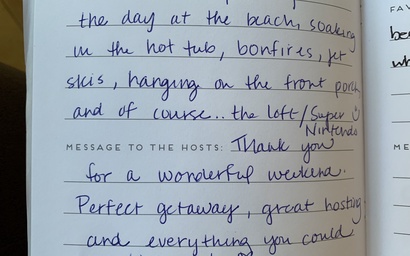 the day at the beach, soaking
in the hot tub, bonfires, jet
skis, hanging on the front porch
and of course.. the loft/Super
Nintendo
MESSAGE TO THE HOSTS: Thank you
for a wonderful weekend.
Perfect getaway, great hosting
and everything you could
FAV
ME